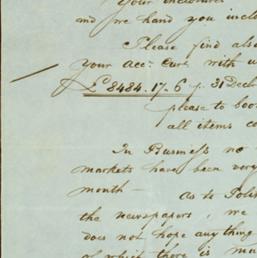 Your enclosures
and we hand you inclo
Please find also
your acc: Curt with u
£8484.17.6 p. 31 Dec
please to boo
all items c
In Busmels no
markets have been very
month — As to Polis
the newspapers, we
does not hope anything
of which there is mu